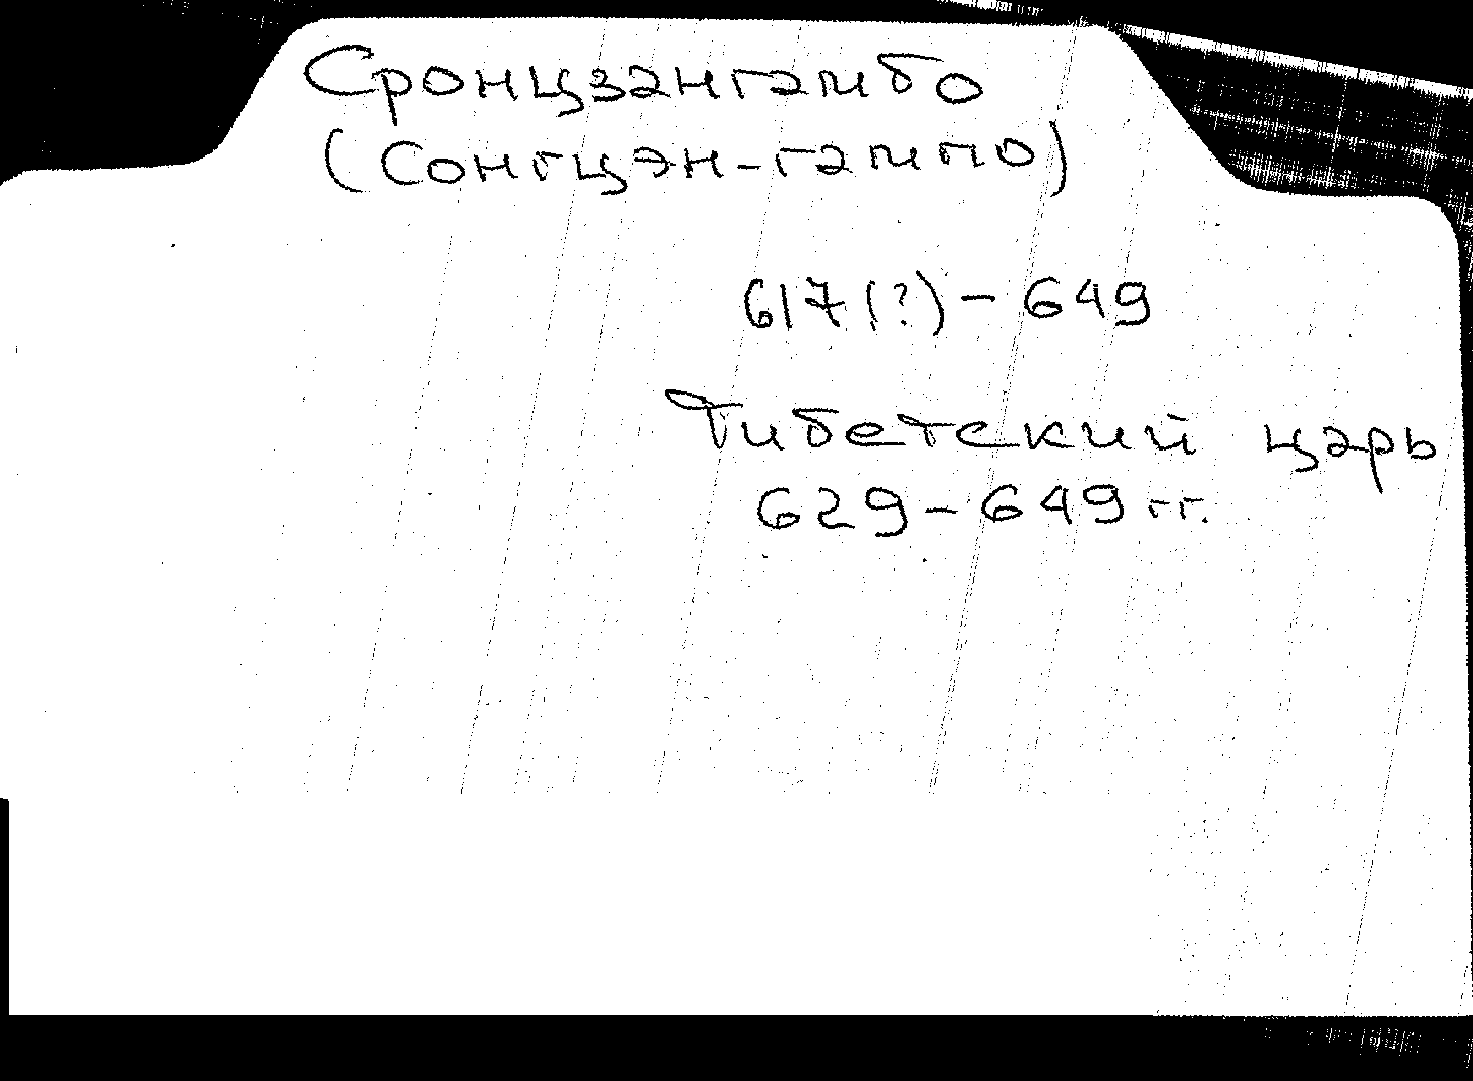 Сронцзангамбо
(Сонгцэн-гампо)
617(?) – 649
Тибетский царь
629 – 649 гг.